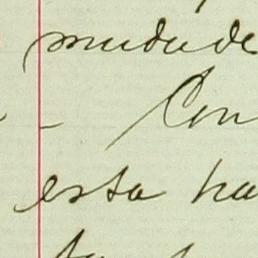 mudade
- Con
esta ha